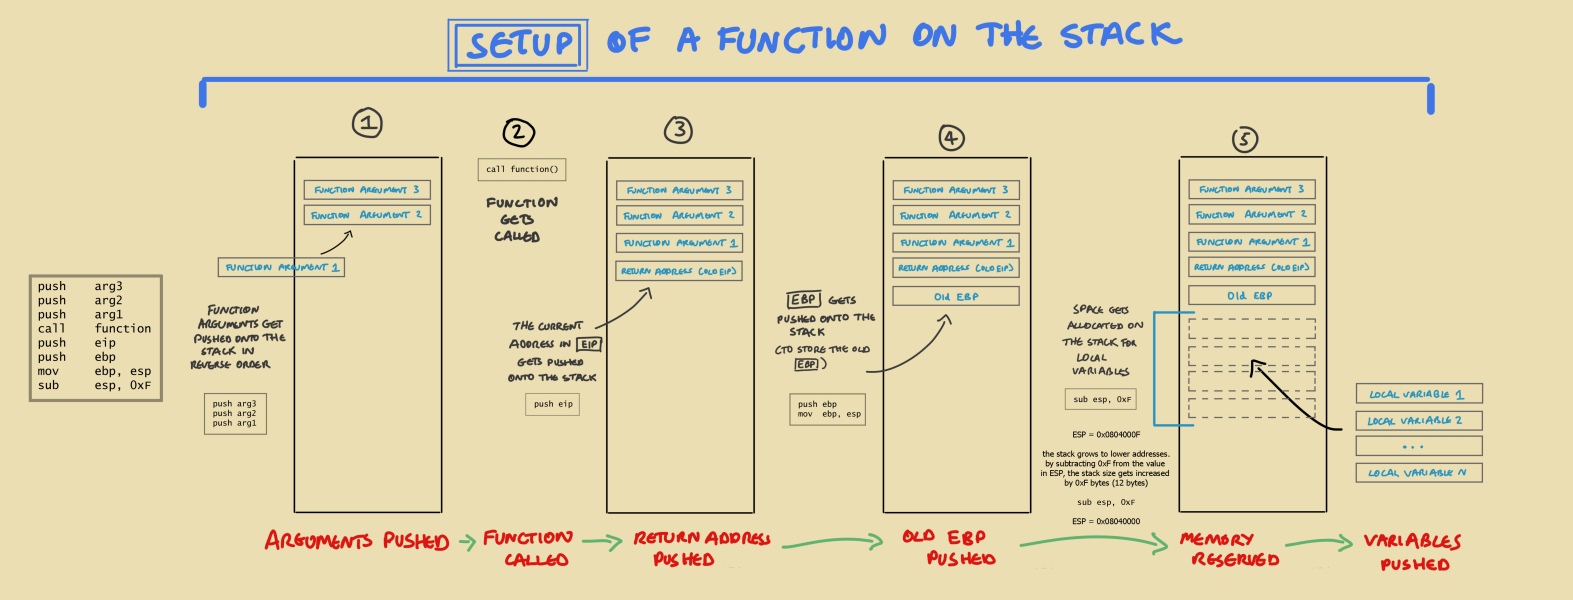 SETUP OF A FUNCTION ON THE STACK
1
2
3
4
5
push arg3
push arg2
push arg1
call function
push eip
push ebp
mov ebp, esp
sub esp, 0xF
FUNCTION ARGUMENT 3
FUNCTION ARGUMENT 2
FUNCTION ARGUMENT 1
FUNCTION
ARGUMENTS GET
PUSHED ONTO THE
STACK IN
REVERSE ORDER
push arg3
push arg2
push arg1
call function()
FUNCTION
GETS
CALLED
FUNCTION ARGUMENT 3
FUNCTION ARGUMENT 2
FUNCTION ARGUMENT 1
RETURN ADDRESS (OLD EIP)
THE CURRENT
ADDRESS IN EIP
GETS PUSHED
ONTO THE STACK
push eip
FUNCTION ARGUMENT 3
FUNCTION ARGUMENT 2
FUNCTION ARGUMENT 1
RETURN ADDRESS (OLD EIP)
Old EBP
EBP GETS
PUSHED ONTO THE
STACK
(TO STORE THE OLD
EBP)
push ebp
mov ebp, esp
FUNCTION ARGUMENT 3
FUNCTION ARGUMENT 2
FUNCTION ARGUMENT 1
RETURN ADDRESS (OLD EIP)
Old EBP
SPACE GETS
ALLOCATED ON
THE STACK FOR
LOCAL
VARIABLES
sub esp, 0xF
ESP = 0x0804000F
the stack grows to lower addresses.
by subtracting 0xF from the value
in ESP, the stack size gets increased
by 0xF bytes (12 bytes)
sub esp, 0xF
ESP = 0x08040000
LOCAL VARIABLE 1
LOCAL VARIABLE 2
...
LOCAL VARIABLE N
ARGUMENTS PUSHED
FUNCTION
CALLED
RETURN ADDRESS
PUSHED
OLD EBP
PUSHED
MEMORY
RESERVED
VARIABLES
PUSHED